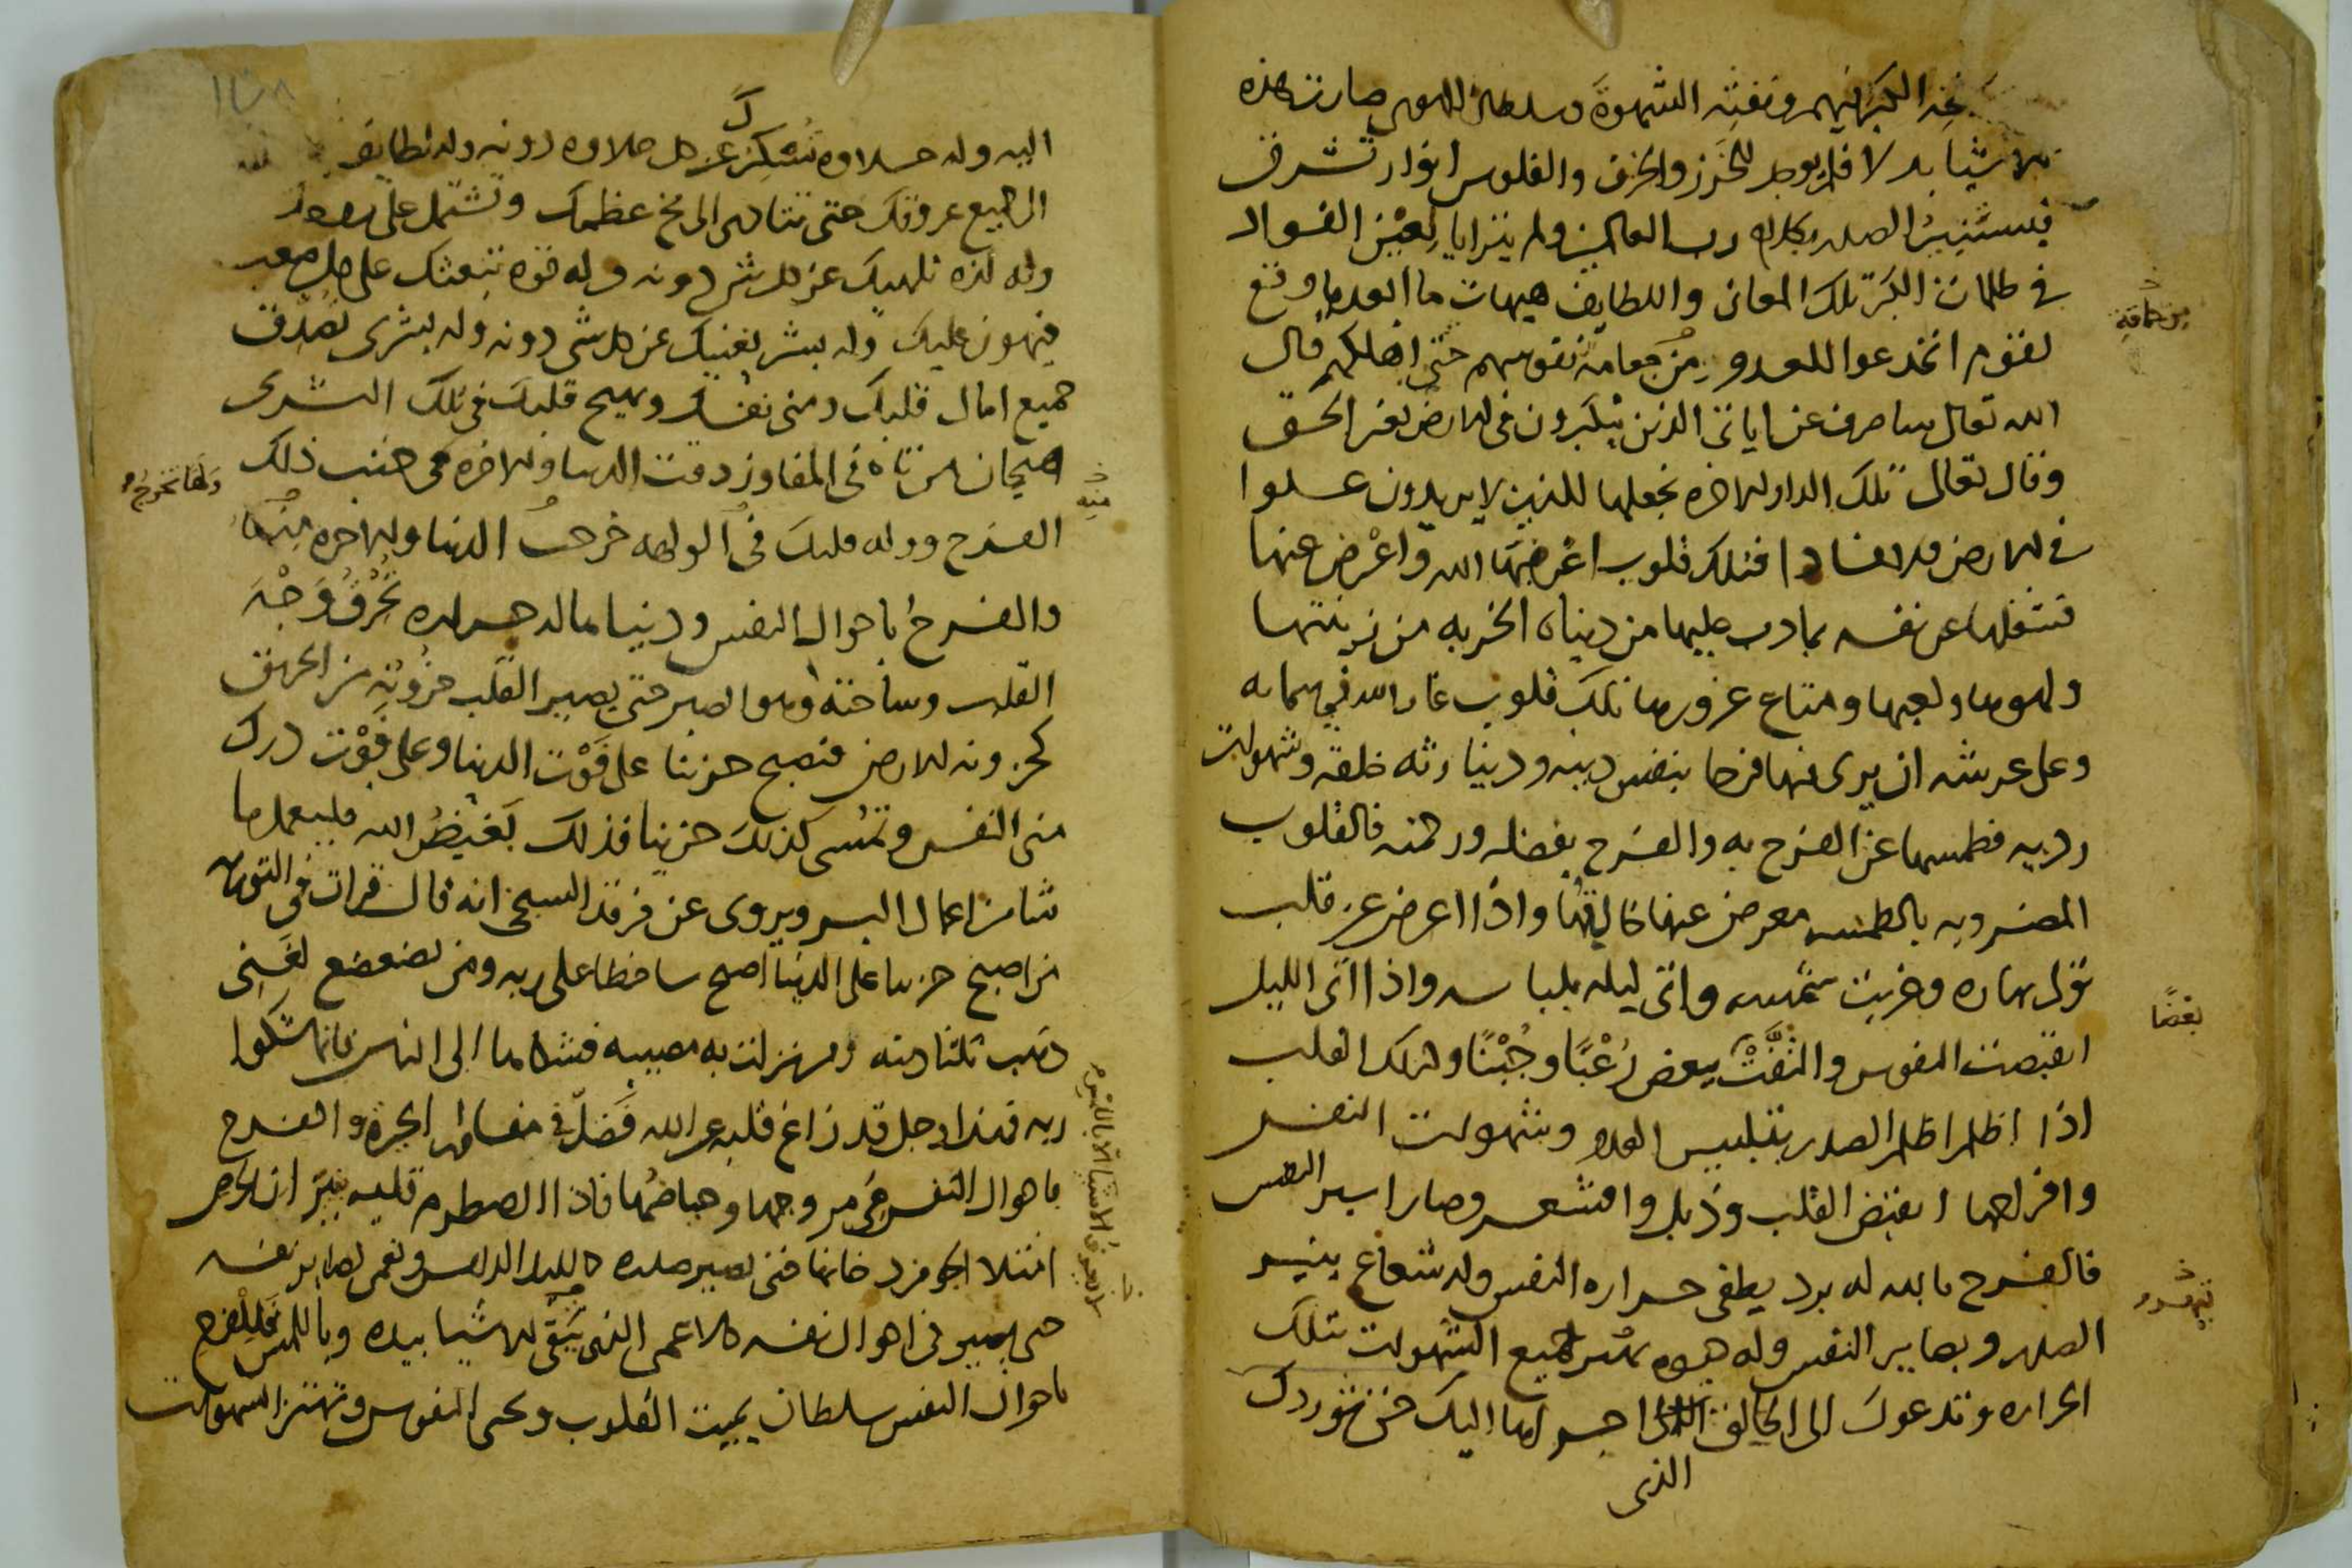 الكبر فيهم ونفثه الشهوة وسلطان الهوى صارت هذه
الاشيا بدلا فلم يوجد للخرز والخزف والفلوس انوار تشرق
فيستنير الصدر بكلام رب العالمين ولم يترايا لعين الفواد
في ظلمات الكبر تلك المعانى واللطايف هيهات ما ابعد ما وقع
لقوم انخدعوا للعدو من نفوسهم حتى اهلكهم قال
الله تعالى ساصرف عن اياتى الذين يتكبرون فى الارض بغير الحق
وقال تعالى تلك الدار الاخره نجعلها للذين لا يريدون علوا
في الارض ولا فسادا فتلك قلوب اعرضها الله واعرض عنها
فشغلها عن نفسه بما دب عليها من دنياه الخربه من زينتها
ولهوها ولعبها ومتاع غرورها تلك قلوب غار الله في سمايه
وعلى عرشه ان يرى فيها فرحا بنفس دنيه ودنيا رثه خلقه وشهوات
رديه فطمسها عن الفرح به والفرح بفضله ورحمته فالقلوب
المضروبه بالطمس معرض عنها خالقها واذا اعرض عن قلب
تولى نهاره وغربت شمسه واتى ليله بلباسه واذا اتى الليل
انقبضت النفوس والتفت ببعض رعبا وجبنا وكذلك القلب
اذا اظلم اظلم الصدر بتلبيس العدو وشهوات النفس
وافراحها انقبض القلب وذبل واقشعر وصار اسير النفس
فالفرح بالله له برد يطفى حراره النفس وله شعاع ينير
الصدر وبصاير النفس وله جميع الشهوات بتلك
الحراره وتدعوك الى الخالق احبها اليك حتى توردك
الذى
بعضا
اليه وله حلاوه تسكرك عن كل حلاوه دونه وله لطايف
الى جميع عروقك حتى تتادى الى مخ عظمك وتشتمل على
وله لذه تلهيك عن كل شى دونه وله قوه تبعثك على كل صعب
فيهون عليك وله بشر يغنيك عن كل شى دونه وله بشرى تصدق
جميع امال قلبك ومنى نفسك ويهيج قلبك فى تلك البشرى
هيجان من تاه فى المفاوز دقت الدنيا والاخره فى جنب ذلك
الفرح ووله قلبك فى الوله خرجت الدنيا والاخره منها
والفرح باحوال النفس ودنيا لها حراره تحرق وجه
القلب وساحته وهو الصدر حتى يصير القلب حزونه من الحرقه
كحزونه الارض فتصبح حزينا على فوت الدنيا وعلى فوت درك
منى النفس وتمسى كذلك حزينا فذلك بغيض الله فليعمل ما
شا من اعمال البر ويروى عن فرقد السبخى انه قال قرات فى التوراه
من اصبح حزينا على الدنيا اصبح ساخطا على ربه ومن تضعضع لغنى
ذهب ثلثا دينه ومن نزلت به مصيبه فشكاها الى الناس فانما شكوا
ربه فهذا رجل قد زاغ قلبه عن الله فضل في مفاوز الحيرة والفرح
باحوال النفس فى مروجها وحياضها فاذا اضطرم قلبه بنيران الحرص
امتلا الجو من دخانها حتى يصير صدره كالليل الدامس وتعمى بصاير نفسه
حتى يصير فى احوال نفسه كالاعمى الذى يتقى الاشيا بيده وباللمس فللفرح
باحوال النفس سلطان يميت القلوب ويحيى النفوس وتهتز الشهوات
منه